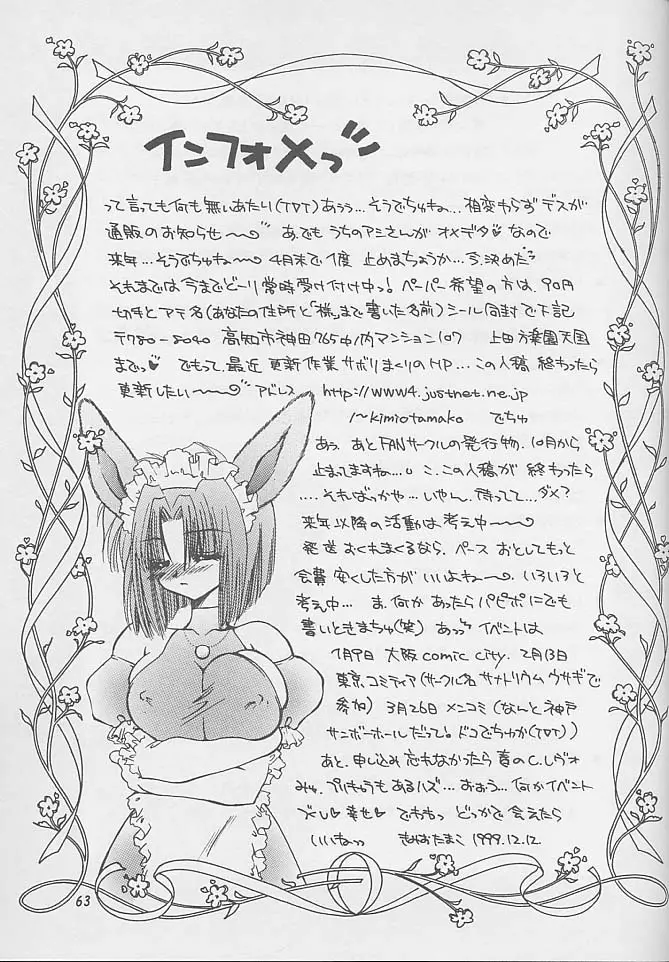 インフォメっ
って言っても何も無いあたり(TDT)あぅぅ…そうでちゅね…相変わらずデスが
通販のお知らせ〜 あ、でもうちのアミさんがオメデタ♡なので
来年…そうでちゅね〜4月末で1度 止めまちょうか…今、決めた?
それまでは今までどーり常時受け付け中っ! ペーパー希望の方は、90円
切手とアテ名(あなたの住所と「様」まで書いた名前)シール同封で下記
〒780-8040 高知市神田765 マンション107 上田方楽園天国
までっ♥ でもって、最近 更新作業サボりまくりのHP…この人稿終わったら
更新したい〜 アドレス http://www4.justnet.ne.jp
/~kimiotamako でちゅ
あぅ、あとFANサークルの発行物、10月から
止まってますね…。こ、この人稿が終わったら
....そればっかや…いやん、待ってて…ダメ?
来年以降の活動は考え中〜
発送おくれまくるなら、ペースおとしてもっと
会費安くした方がいいよね〜。いろいろと
考え中… ま、何かあったらパピポにでも
書いときまちゅ(笑) あっ イベントは
1月9日 大阪comic city. 2月13日
東京コミティア(サークル名 サナトリウムウサギで
参加) 3月26日 メンコミ(なんと神戸
サンボーホールだって! ドコでちゅか(TDT))
あと、申し込み忘れなかったら春のC.レヴォ
みゅ、プリきゅうもあるハズ…おおぅ…何かイベント
づくし♥幸せ♥ でももっ どっかで会えたら
いいねっ きみおたまこ 1999.12.12.
63